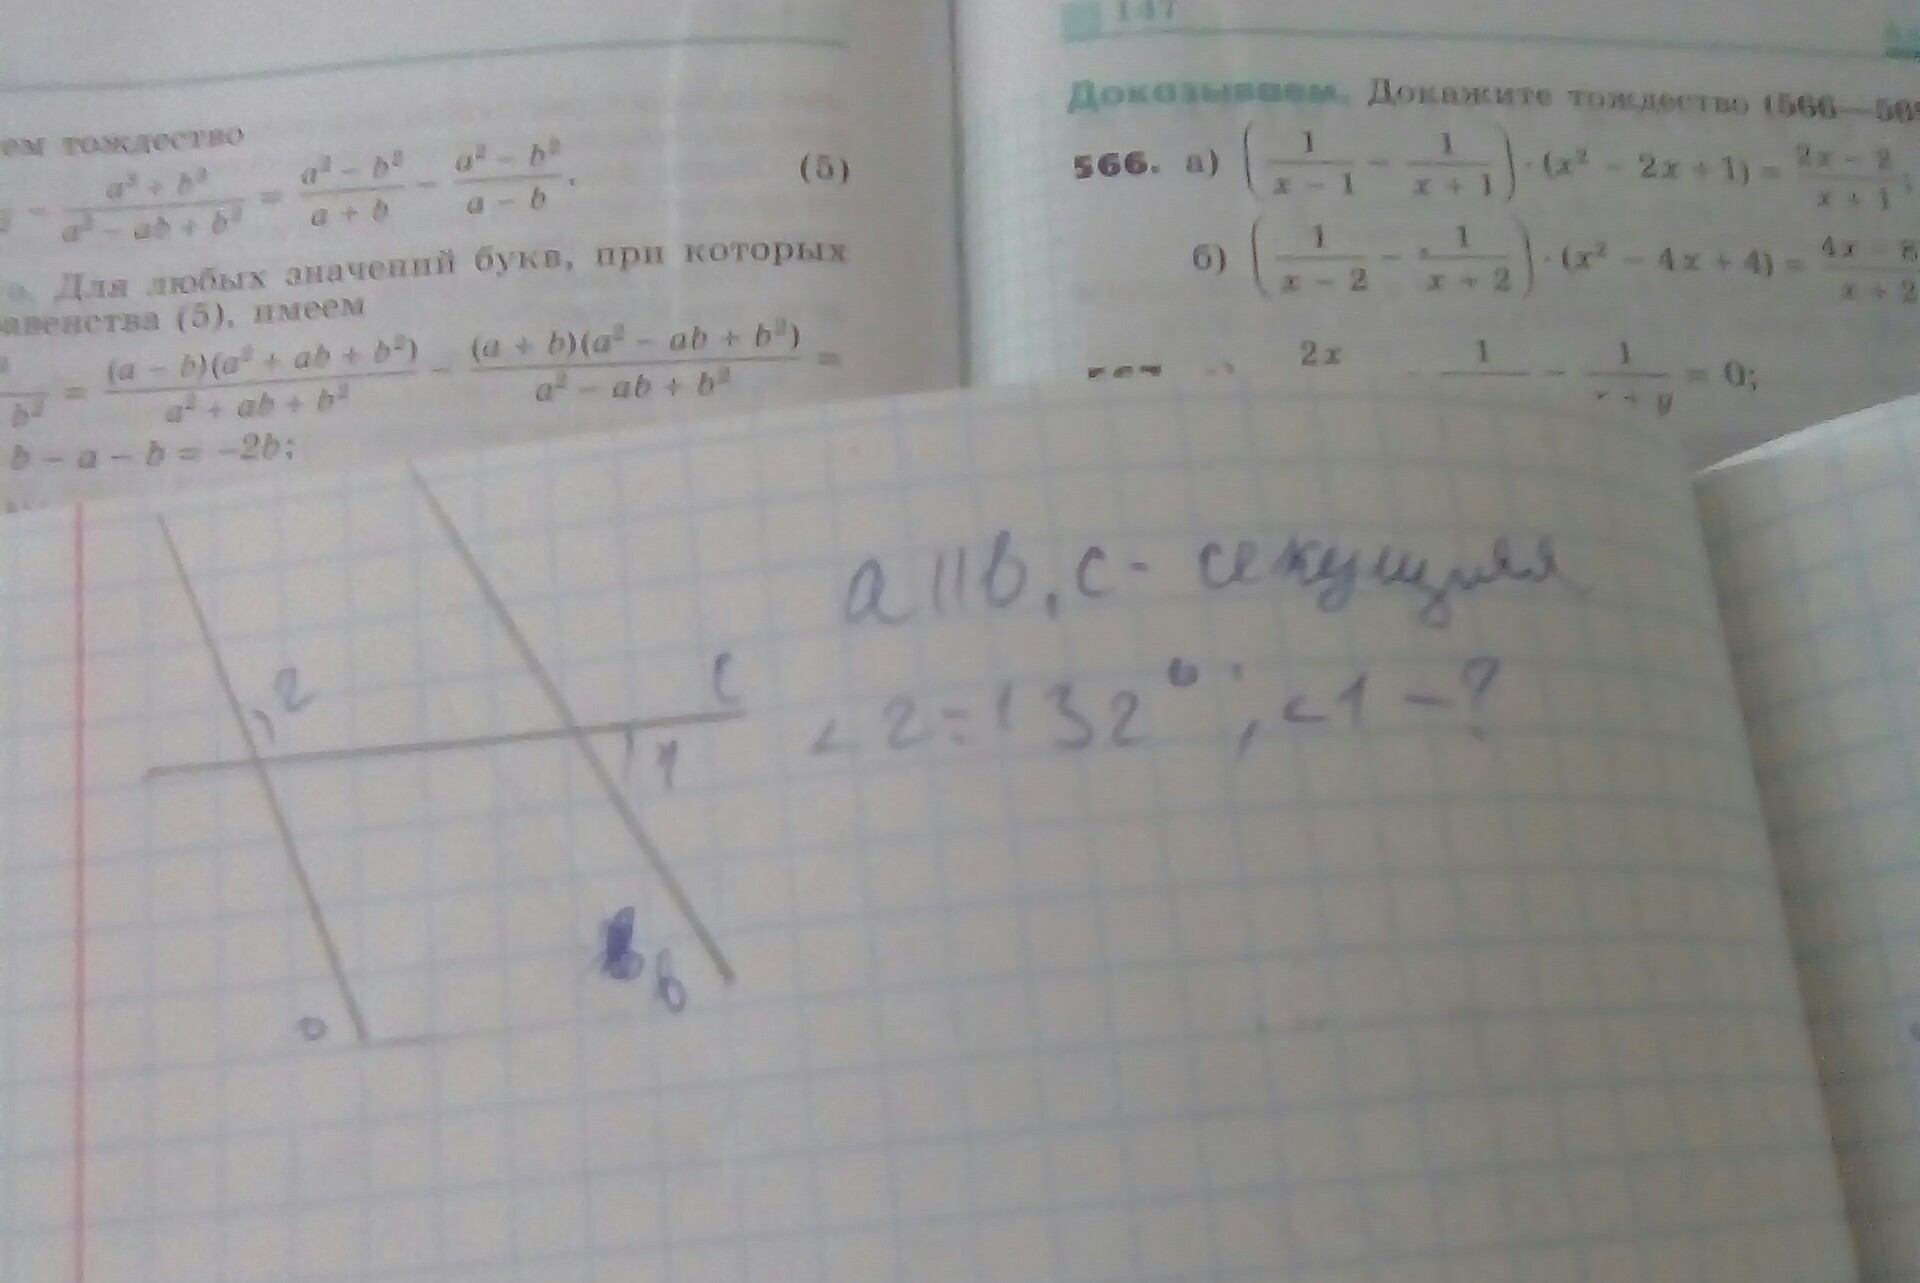 147
ем тождество
a² + b² / a² − ab + b² = a² − b² / a + b − a² − b² / a − b. (5)
Для любых значений букв, при которых
авенства (5), имеем
b² = (a − b)(a² + ab + b²) / a² + ab + b² − (a + b)(a² − ab + b²) / a² − ab + b² =
b − a − b = −2b;
Доказываем. Докажите тождество (566—56
566. а) (1 / x − 1 − 1 / x + 1) · (x² − 2x + 1) = 2x − 2 / x + 1;
б) (1 / x − 2 − 1 / x + 2) · (x² − 4x + 4) = 4x − 8 / x + 2
2x 1 − 1 / x + y = 0;
2
c
1
b
a || b, c - секущая
<2=132°, <1 - ?